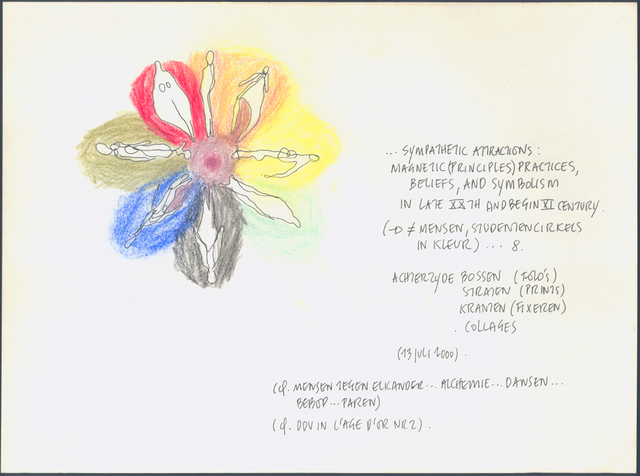 ... SYMPATHETIC ATTRACTIONS :
MAGNETIC (PRINCIPLES) PRACTICES,
BELIEFS, AND SYMBOLISM
IN LATE XXTH AND BEGIN XI CENTURY.
(→ ≠ MENSEN, STUDENTENCIRKELS
IN KLEUR) ... 8.
ACHTERZYDE BOSSEN (FOTO'S)
STRATEN (PRINTS)
KRANTEN (FIXEREN)
. COLLAGES
(13 JULI 2000) .
(cf. MENSEN TEGEN ELKANDER... ALCHEMIE... DANSEN...
... PAREN)
(cf. IN L'AGE D'OR NR 2) .